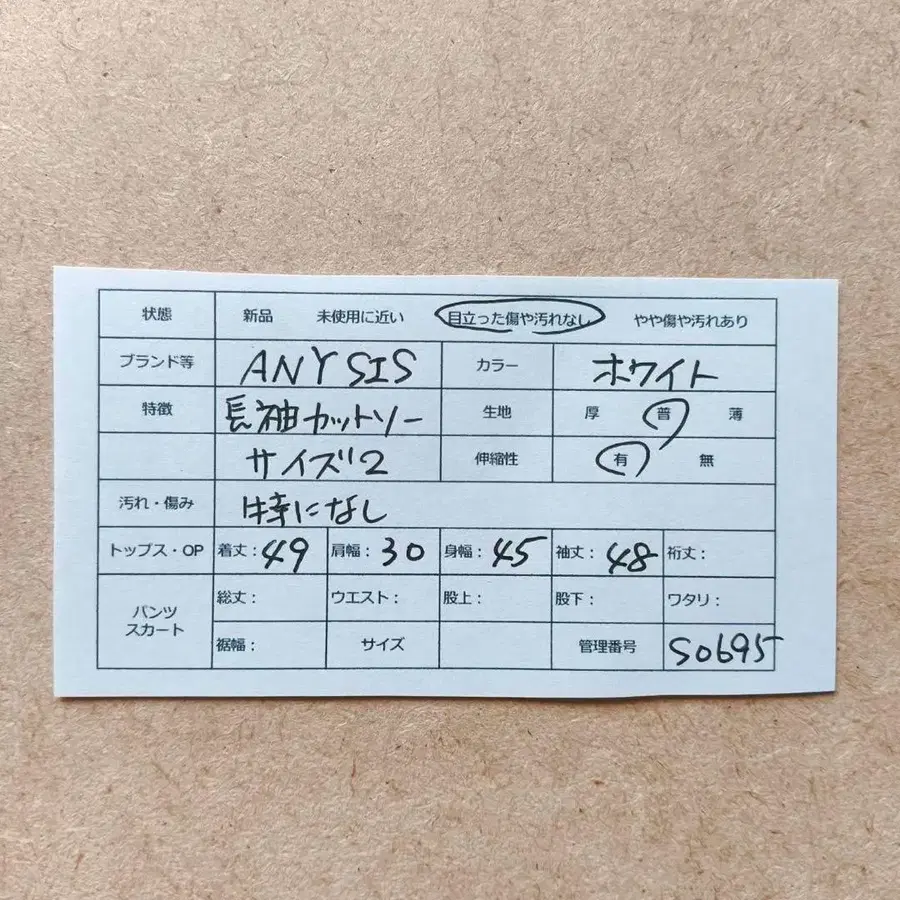 状態 新品 未使用に近い 目立った傷や汚れなし やや傷や汚れあり
ブランド等 ANY SIS カラー ホワイト
特徴 長袖カットソー 生地 厚 普 薄
サイズ2 伸縮性 有 無
汚れ・傷み 特になし
トップス・OP 着丈：49 肩幅：30 身幅：45 袖丈：48 裄丈：
パンツ スカート 総丈： ウエスト： 股上： 股下： ワタリ：
裾幅： サイズ 管理番号 S0695